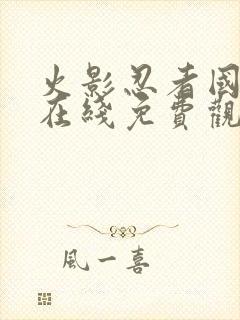 火影忍者国
在綫免費觀
風一喜